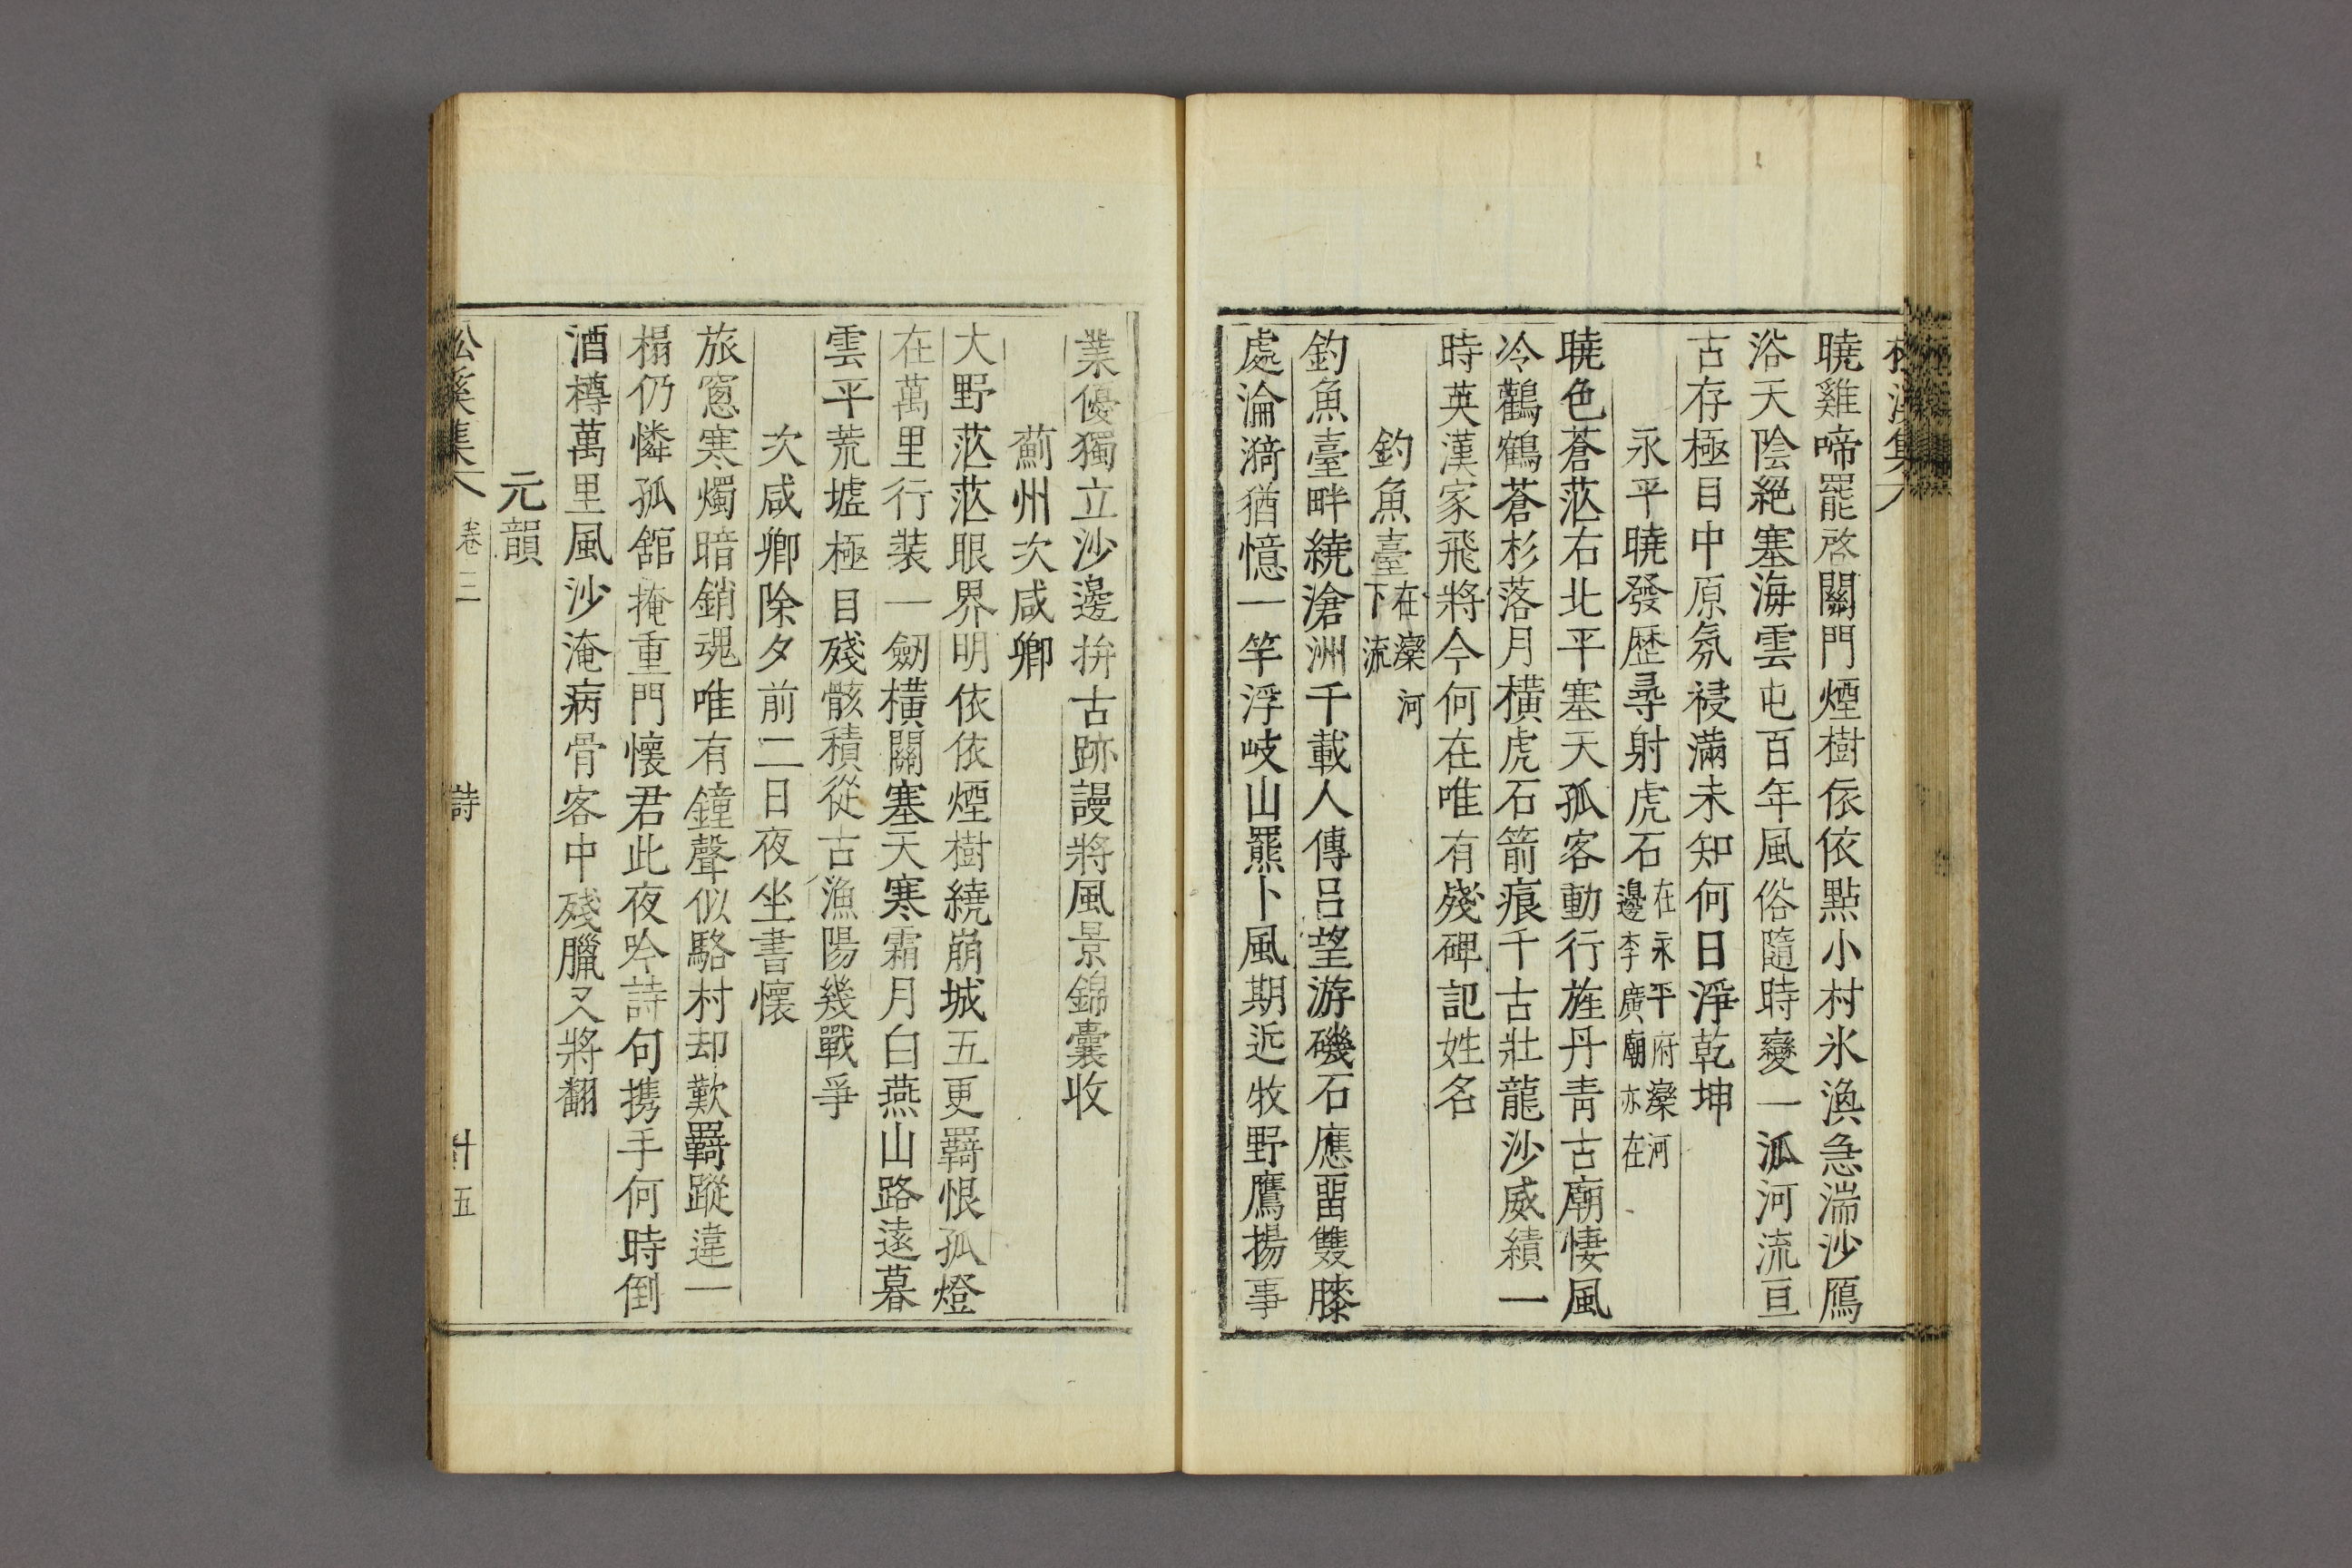 曉雞啼罷啓關門煙樹依依點小村氷渙急湍沙鴈
浴天陰絕塞海雲屯百年風俗隨時變一派河流亘
古存極目中原氛祲滿未知何日淨乾坤
永平曉發歷尋射虎石在永平府灤河
邊李廣廟亦在
曉色蒼茫右北平塞天孤客動行旌丹靑古廟悽風
冷鸛鶴蒼杉落月橫虎石箭痕千古壯龍沙威績一
時英漢家飛將今何在唯有殘碑記姓名
釣魚臺在灤河
下流
釣魚臺畔繞滄洲千載人傳呂望游磯石應留雙膝
處淪漪猶憶一竿浮岐山羆卜風期近牧野鷹揚事
業優獨立沙邊拚古跡謾將風景錦囊收
薊州次咸卿
大野茫茫眼界明依依煙樹繞崩城五更羇恨孤燈
在萬里行裝一劒橫關塞天寒霜月白燕山路遠暮
雲平荒墟極目殘骸積從古漁陽幾戰爭
次咸卿除夕前二日夜坐書懷
旅窓寒燭暗銷魂唯有鐘聲似駱村却歎羇蹤違一
榻仍憐孤舘掩重門懷君此夜吟詩句携手何時倒
酒樽萬里風沙淹病骨客中殘臘又將翻
元韻
松溪集 卷三 詩 廿五